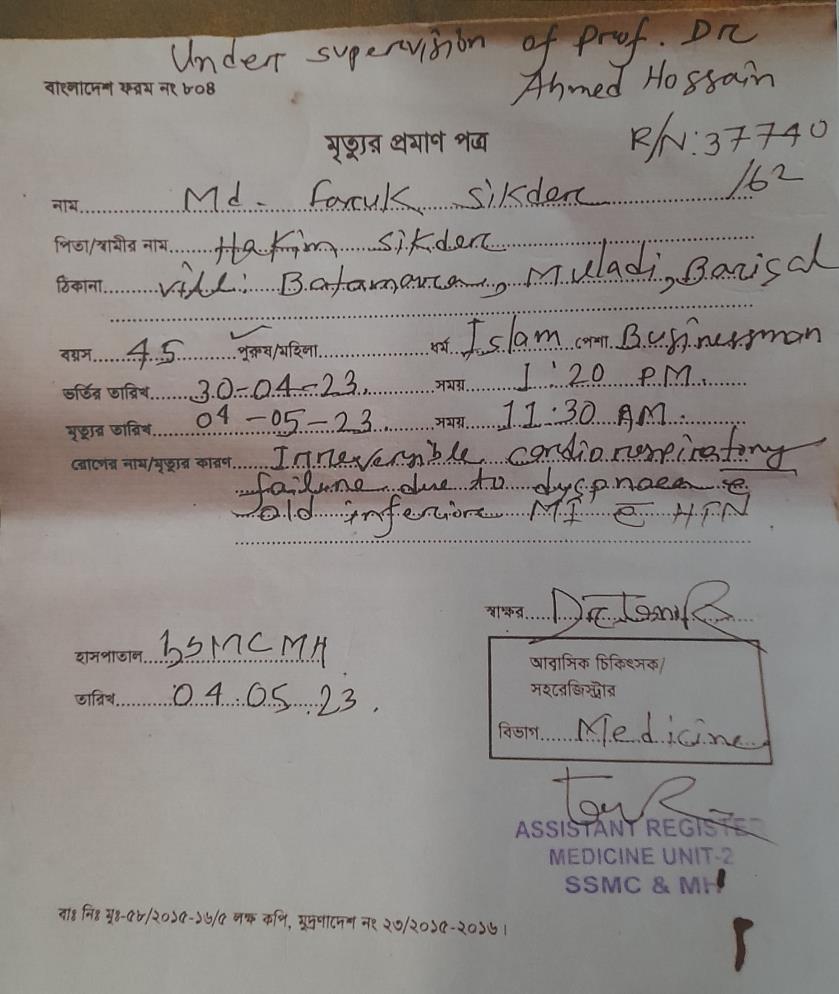 Under supervision of Prof. Dr
Ahmed Hossain
বাংলাদেশ ফরম নং ৮০৪
মৃত্যুর প্রমাণ পত্র
R/N: 37740
/62
নাম Md. Faruk Sikder
পিতা/স্বামীর নাম Hakim Sikder
ঠিকানা Vill: Batamara, Muladi, Barisal
বয়স 45 পুরুষ/মহিলা ধর্ম Islam পেশা Businessman
ভর্তির তারিখ 30-04-23 সময় 1:20 P.M.
মৃত্যুর তারিখ 04-05-23 সময় 11:30 AM.
রোগের নাম/মৃত্যুর কারণ Irreversible cardiorespiratory
failure due to dyspnoea c̄
old inferior MI c̄ HTN
স্বাক্ষর Dr.
হাসপাতাল SSMCMH
তারিখ 04.05.23.
আবাসিক চিকিৎসক/
সহরেজিস্ট্রার
বিভাগ Medicine
ASSISTANT REGISTER
MEDICINE UNIT-2
SSMC & MH
বাঃ নিঃ মুঃ-৫৮/২০১৫-১৬/৫ লক্ষ কপি, মুদ্রণাদেশ নং ২৭/২০১৫-২০১৬।